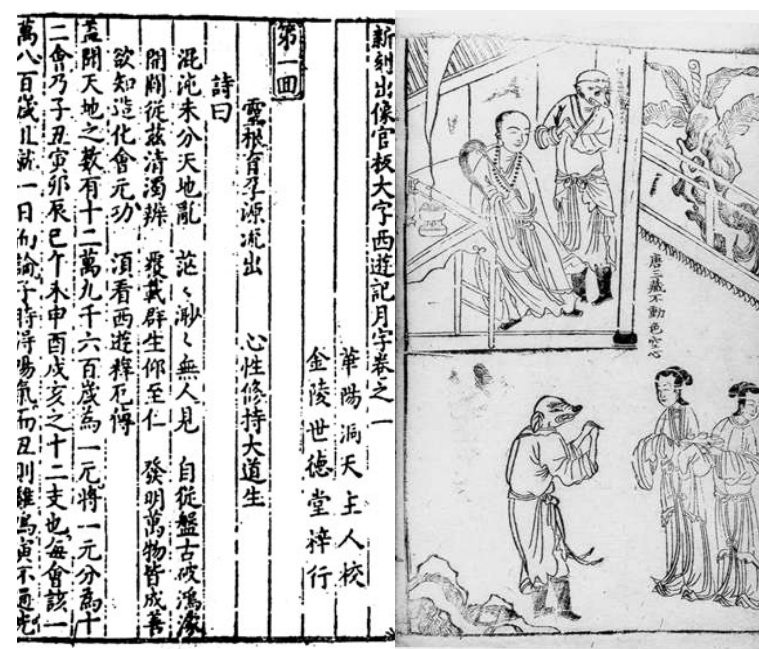 新刻出像官板大字西遊記月字卷之一
華陽洞天主人校
金陵世德堂梓行
第一回
靈根育孕源流出 心性修持大道生
詩曰
混沌未分天地亂 茫々渺々無人見 自從盤古破鴻濛
開闢從茲清濁辨 覆載群生仰至仁 發明萬物皆成善
欲知造化會元功 須看西遊釋厄傳
蓋聞天地之數有十二萬九千六百歲為一元將一元分為十
二會乃子丑寅卯辰巳午未申酉戌亥之十二支也每會該一
萬八百歲且就一日而論子時得陽氣而丑則雞鳴寅不通光
唐三藏不動色空心